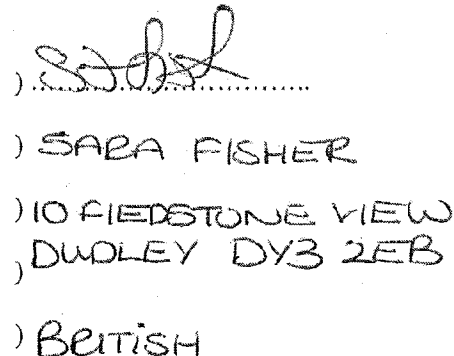 )
) SARA FISHER
) 10 FIEDSTONE VIEW
DUDLEY DY3 2EB
)
) BRITISH